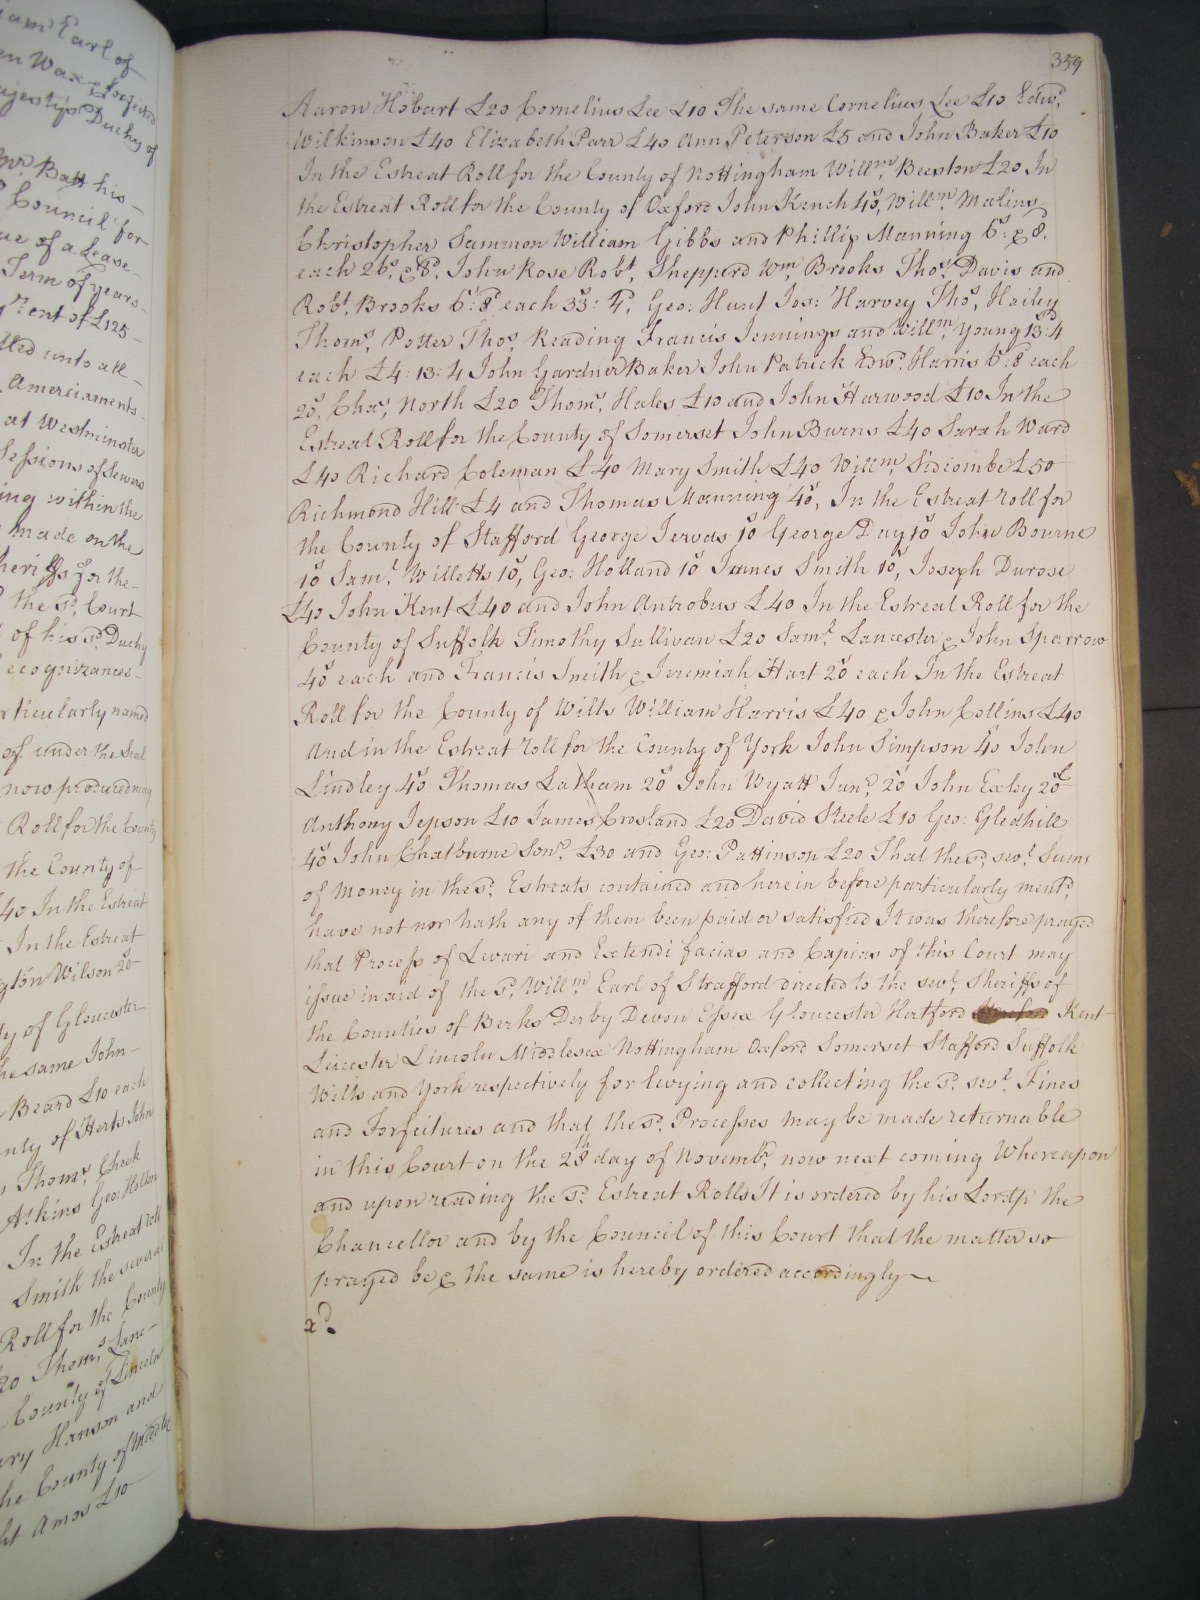 iam Earl of
en Wax & Projected
ajestys Duchy of
Mr. Batt his
Council for
ue of a Lease
Term of years
Rent of £125
tted unto all
Amerciaments
at Westminster
Sessions of Sewers
ing within the
made on the
heriffs for the
the sd. Court
of his sd. Duchy
ecognizances
rticularly named
of under the Seal
now produced may
Roll for the County
the County of
40 In the Estreat
In the Estreat
gton Wilson 20s
ty of Gloucester
he same John
Beard £10 each
nty of Herts John
Thoms. Cheek
Atkins Geo: Holton
In the Estreat roll
Smith the several
Roll for the County
20 Thoms. Lane
County of Lincoln
ary Hanson and
he County of Middle
ht Amos £10
359
Aaron Hobart £20 Cornelius Lee £10 The same Cornelius Lee £10 Edwd.
Wilkinson £40 Elizabeth Parr £40 Ann Peterson £5 and John Baker £10
In the Estreat Roll for the County of Nottingham Willm. Beeston £20 In
the Estreat Roll for the County of Oxford John Kench 40s, Willm. Malins
Christopher Sammon William Gibbs and Phillip Manning 6s. & 8d.
each 26s. & 8d. John Rose Robt. Sheppard Wm. Brooks Thos. Davis and
Robt. Brooks 6s: 8d each 33s: 4d. Geo: Hunt Jos: Harvey Thos. Hailey
Thoms. Potter Thos. Reading Francis Jennings and Willm. Young 13:4
each £4: 13: 4 John Gardner Baker John Patrick Edwd. Harris 6s: 8d each
20s, Chas. North £20 Thoms. Hales £10 and John Harwood £10 In the
Estreat Roll for the County of Somerset John Burns £40 Sarah Ward
£40 Richard Coleman £40 Mary Smith £40 Willm. Sidcombe £50
Richmond Hill £4 and Thomas Manning 40s, In the Estreat roll for
the County of Stafford George Jervas 10s George Day 10s John Bourne
10s Saml. Willetts 10s, Geo: Holland 10s James Smith 10s, Joseph Durose
£40 John Kent £40 and John Antrobus £40 In the Estreat Roll for the
County of Suffolk Timothy Sullivan £20 Saml. Lancester & John Sparrow
40s each and Francis Smith & Jeremiah Hart 20s each In the Estreat
Roll for the County of Wilts William Harris £40 & John Collins £40
And in the Estreat roll for the County of York John Simpson 40s John
Lindley 40s Thomas Latham 20s John Wyatt Junr. 20s John Exley 20s
Anthony Jepson £10 James Crosland £20 David Steele £10 Geo: Gledhill
40s John Chatburne Senr. £30 and Geo: Pattinson £20 That the sd. sevl. Sums
of Money in the sd. Estreats contained and herein before particularly mentd.
have not nor hath any of them been paid or satisfied It was therefore prayed
that Process of Levari and Extendi facias and Capias of this Court may
issue in aid of the sd. Willm. Earl of Strafford directed to the sevl. Sheriffs of
the Counties of Berks Derby Devon Essex Gloucester Hertford Kent
Leicester Lincoln Middlesex Nottingham Oxford Somerset Stafford Suffolk
Wilts and York respectively for levying and collecting the sd. sevl. Fines
and Forfeitures and that the sd. Processes may be made returnable
in this Court on the 28th day of Novembr. now next coming Whereupon
and upon reading the sd. Estreat Rolls It is ordered by his Lordp the
Chancellor and by the Council of this Court that the matter so
prayed be & the same is hereby ordered accordingly
xd.